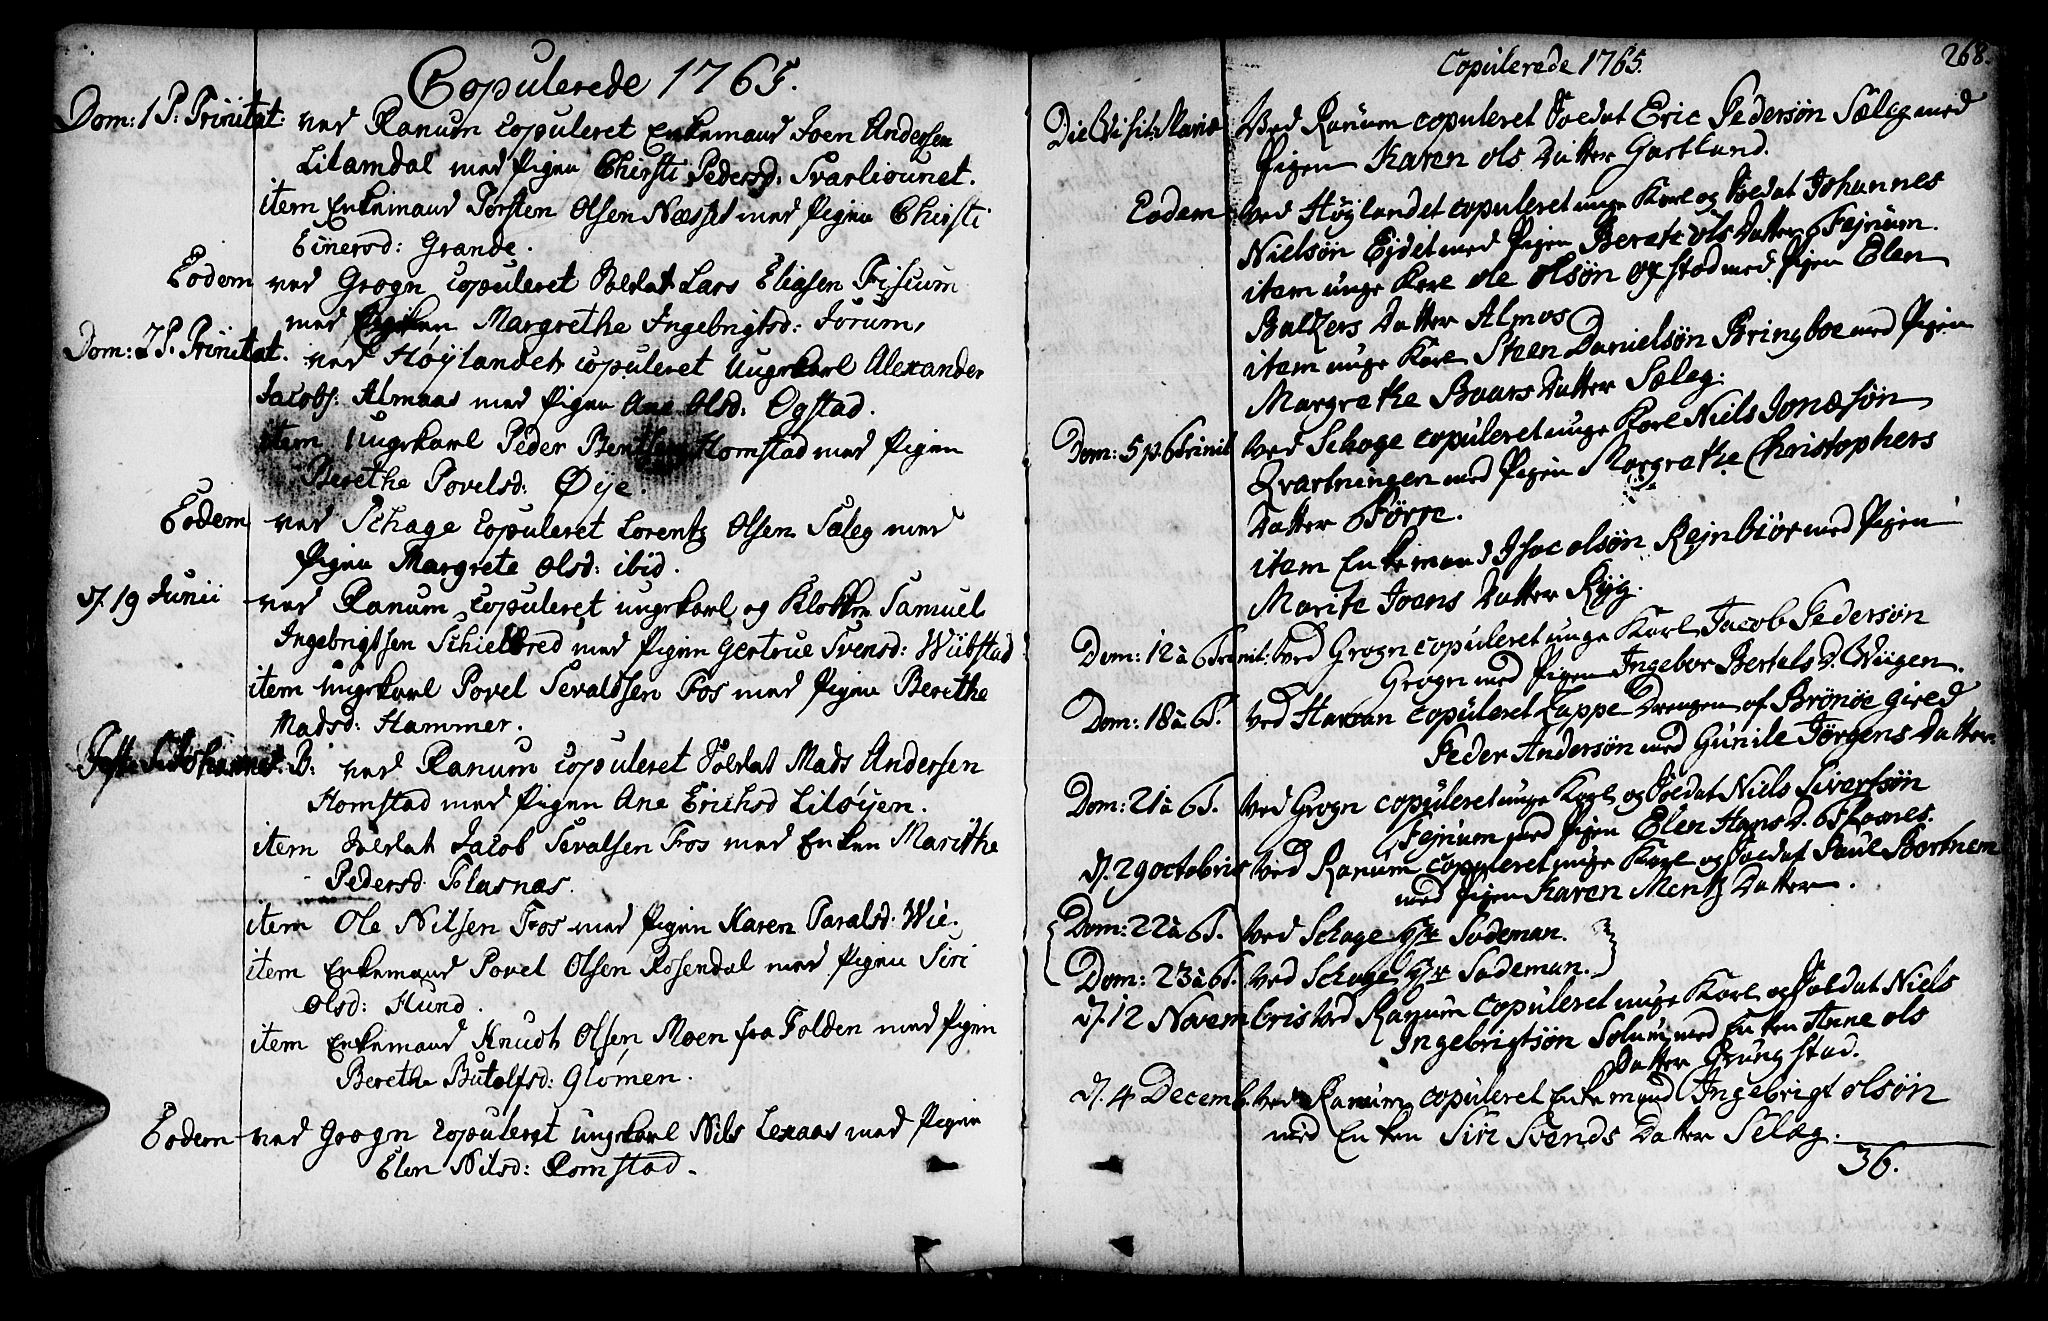 Copulerede 1765.
Dom: 1 P: Trinitat: ved Ranum copuleret Enkemand Joen Andersen
Litamdal med Pigen Chirsti Pedersd: Svarliounet.
item Enkemand Torsten Olsen Næsset med Pigen Chirsti
Einersd: Grande.
Eodem ved Grogn copuleret Soldat Lars Eliasen Fiscum
med Margrethe Ingebrigtsd: Jørum,
Dom: 2 P. Trinitat. ved Høylandet copuleret Ungekarl Alexander
Jacobs: Almaas med Pigen Ane Olsd: Øgstad.
item Ungekarl Peder Homstad med Pigen
Berethe Povelsd: Øye.
Eodem ved Schage copuleret Lorentz Olsen Sæleg med
Pigen Margrete Olsd: ibid.
d. 19 Junii ved Ranum copuleret ungekarl og Klokker Samuel
Ingebrigtsen Schielbred med Pigen Gertrue Svensd: Wiibstad
item ungekarl Povel Sevaldsen Fos med Pigen Berethe
Madsd: Hammer.
Festo S: Johannis B: ved Ranum copuleret Soldat Mads Andersen
Homstad med Pigen Ane Erichsd Litøyen.
item Soldat Jacob Sevalsen Fos med Enken Marithe
Pedersd Flasnæs.
item Ole Nilsen Fos med Pigen Karen Paralsd: Wie.
item Enkemand Povel Olsen Rosendal med Pigen Siri
Olsd: Hund.
item Enkemand Knudt Olsen Moen fra Folden med Pigen
Berethe Butolfsd: Glømen.
Eodem ved Grogn copuleret ungekarl Nils Lexaas med Pigen
Elen Nilsd: Romstad.
Copulerede 1765. 268.
Die Visit: Mariæ Ved Ranum copuleret Soldat Eric Pedersøn Sæleg med
Pigen Karen Ols Datter Gartland.
Eodem ved Høylandet copuleret unge Karl og Soldat Johannes
Nielsøn Eidet med Pigen Berete Ols Datter Fejnum.
item unge Karl Ole Olsøn Øgstad med Pigen Elen
Baltzers Datter Almos
item unge Karl Steen Danielsøn Bringboe med Pigen
Margrethe Baars Datter Sæleg:
Dom: 5 p. Trinit Ved Schage copuleret unge Karl Niels Jonæsøn
Qvartningen med Pigen Margrathe Christophers
Datter Børre.
item Enkemand Isac Olsøn Rejnbiør med Pigen
Marite Joens Datter Ryg.
Dom: 12 à Trinit: Ved Grogn copuleret unge Karl Jacob Pedersøn
Grogn med Pigen Ingebor Bertels D. Wiigen.
Dom: 18 à T. ved Harran copuleret Lappe Drengen af Brønøe gield
Peder Andersøn med Gunile Jørgens Datter
Dom: 21 à T. Ved Grogn copuleret unge Karl og Soldat Niels Sivertsøn
Fejnum med Pigen Elen Hans D.
d. 29 octobris Ved Ranum copuleret unge Karl og Soldat Paul Bortnem
med Pigen Karen Mentz Datter.
Dom: 22 à T. Ved Schage Hr Sodeman.
Dom: 23 à T. Ved Schage Hr Sodeman.
d. 12 Novembris Ved Ranum copuleret unge Karl og Soldat Niels
Ingebrigtsøn Solum med Enken Anne Ols
Datter Grungstad.
d. 4 Decemb. Ved Ranum copuleret Enkemand Ingebrigt Olsøn
med Enken Siri Svends Datter Selæg.
36.